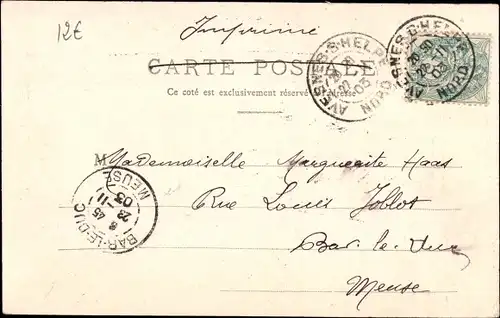 12€
Imprimé
CARTE POSTALE
Ce côté est exclusivement réservé à l'adresse
AVESNES-S-HELPE
NORD
AVESNES-S-HELPE
22 -11
03
NORD
Mademoiselle Marguerite Haas
Rue Louis Joblot
Bar-le-Duc
Meuse
BAR-LE-DUC
8 45
23 -11
03
MEUSE